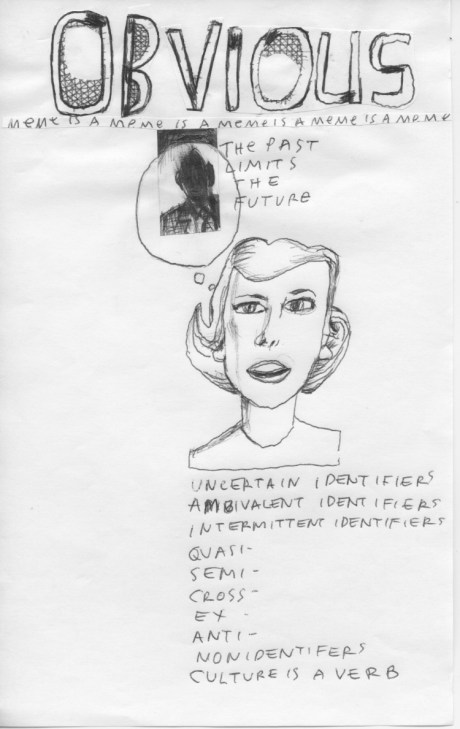 OBVIOUS
MEME IS A MEME IS A MEME IS A MEME IS A MEME
THE PAST
LIMITS
THE
FUTURE
UNCERTAIN IDENTIFIERS
AMBIVALENT IDENTIFIERS
INTERMITTENT IDENTIFIERS
QUASI-
SEMI-
CROSS-
EX -
ANTI-
NONIDENTIFERS
CULTURE IS A VERB